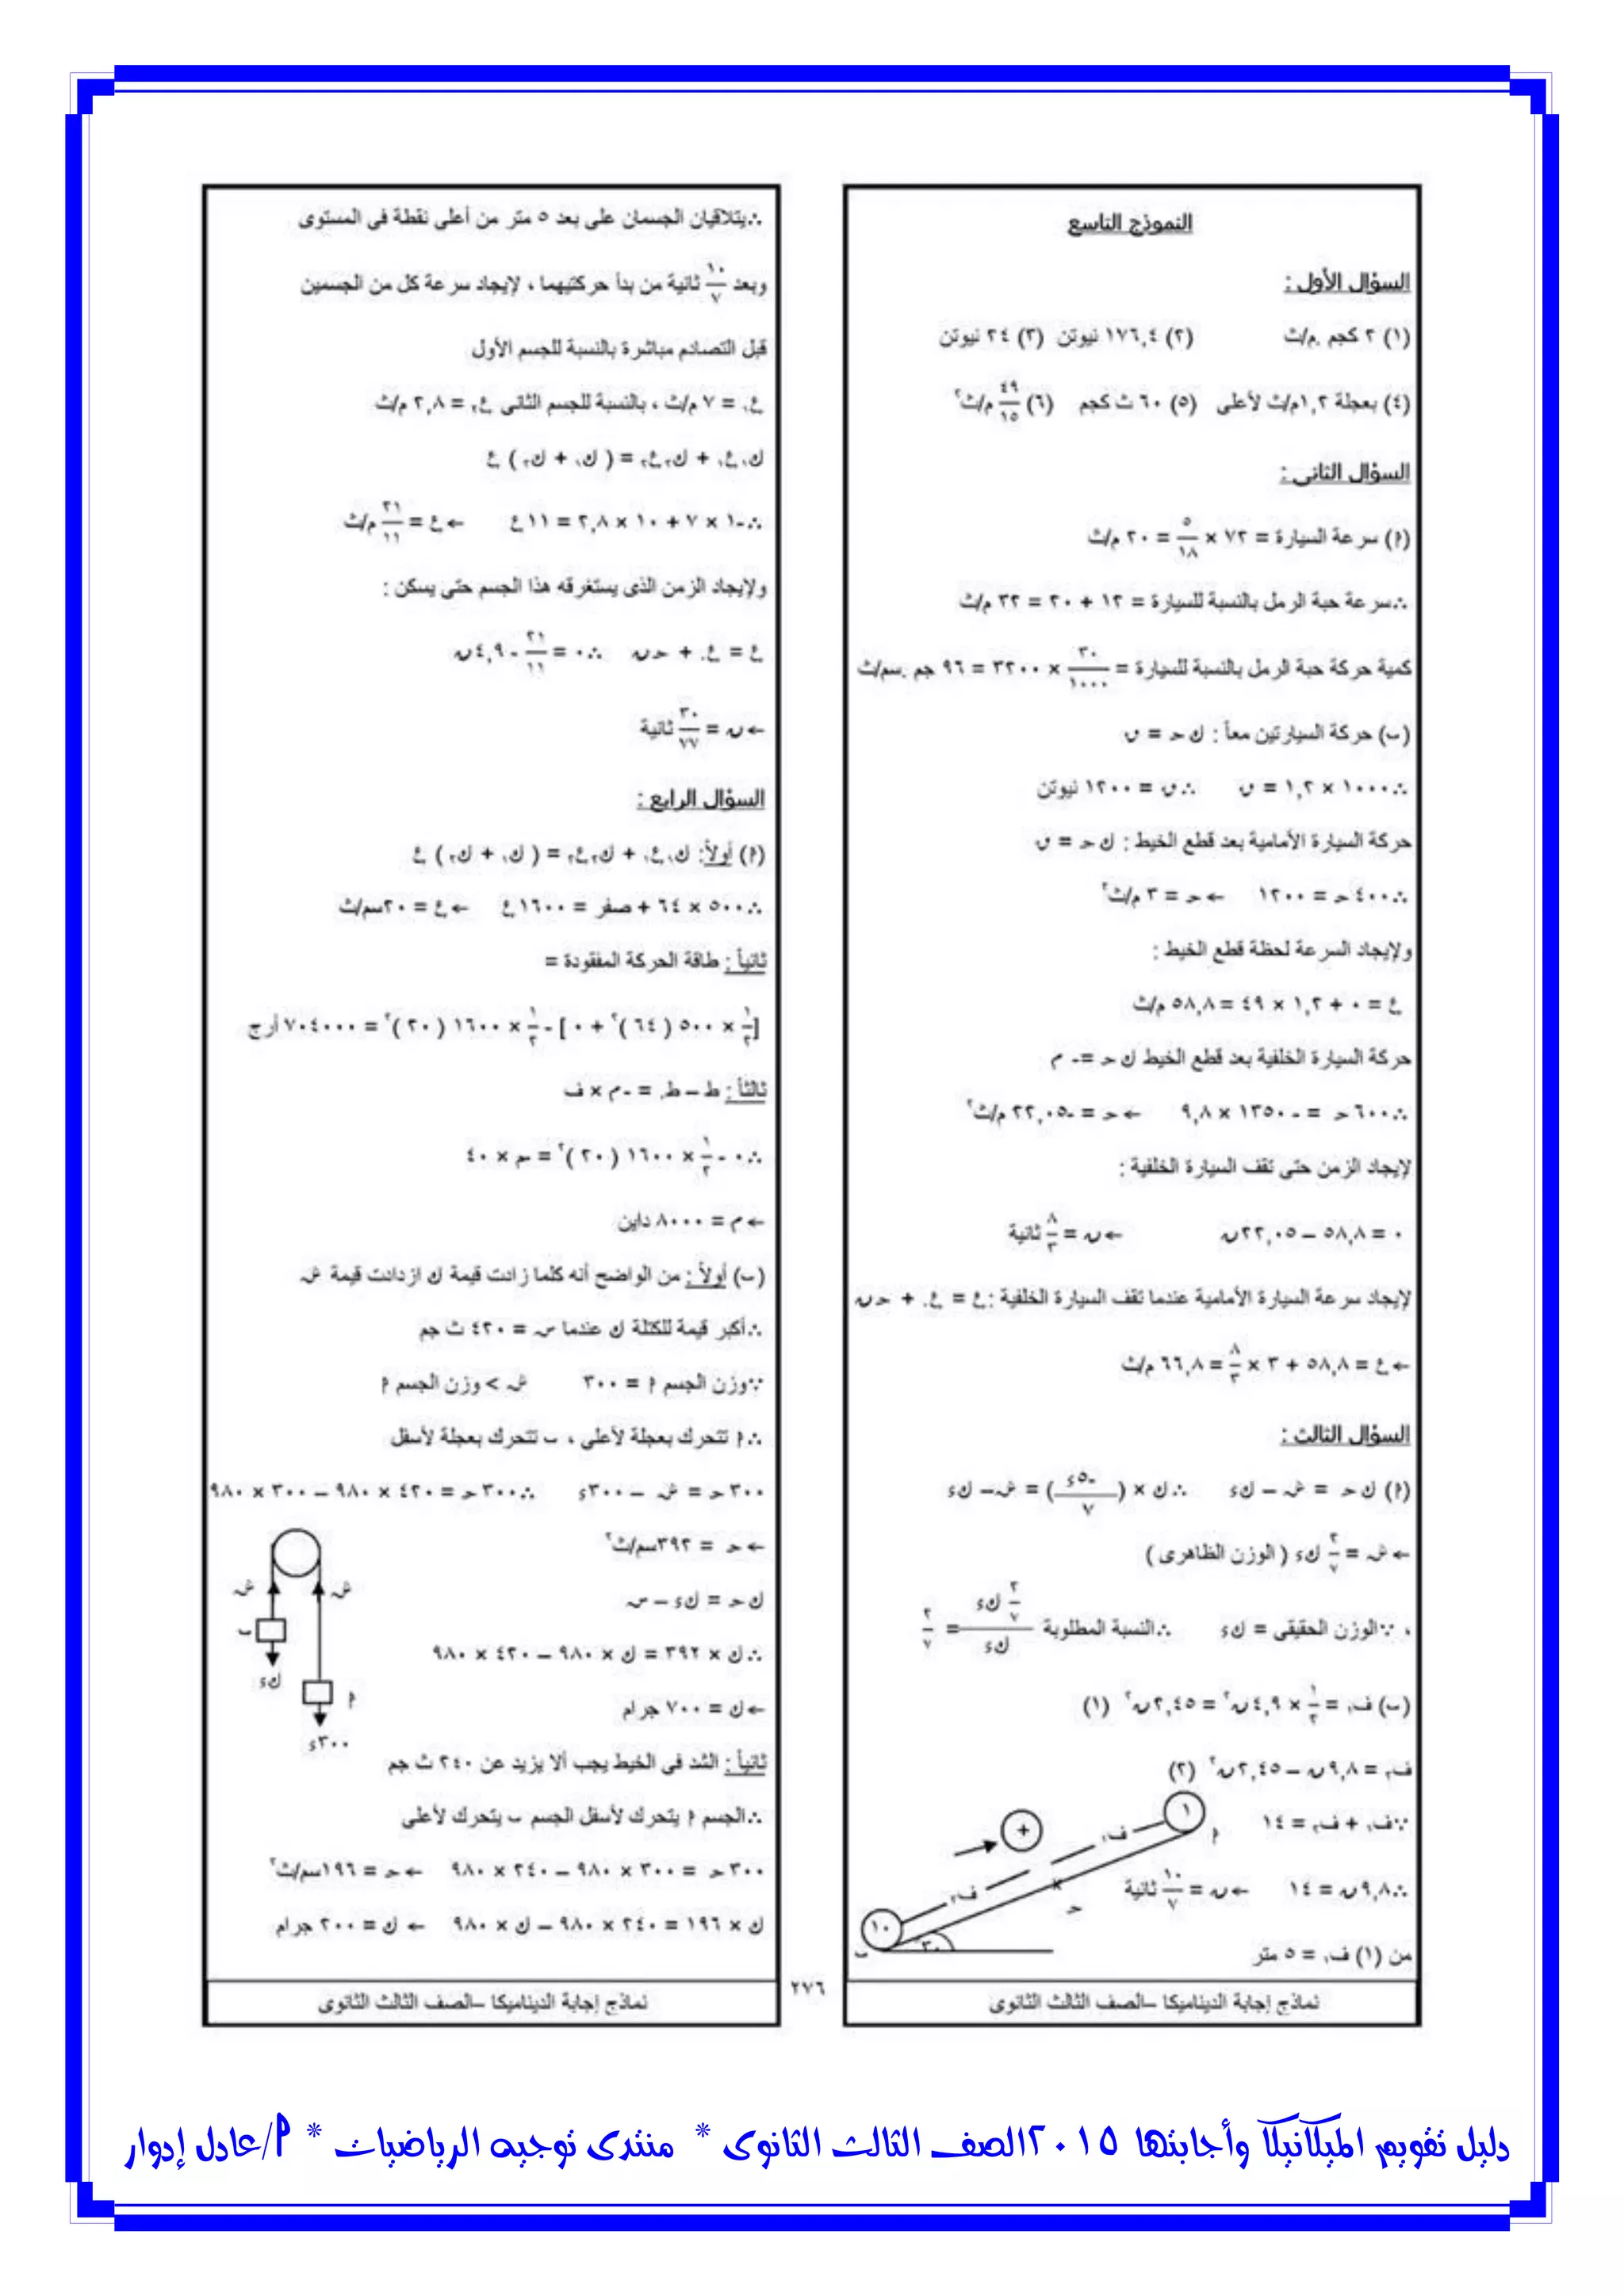 النموذج التاسع
السؤال الأول :
(١) ٢ كجم .م/ث (٢) ١٧٦,٤ نيوتن (٣) ٢٤ نيوتن
(٤) بعجلة ١,٢م/ث لأعلى (٥) ٦٠ ث كجم (٦) ٤٩/١٥ م/ث٢
السؤال الثانى :
(أ) سرعة السيارة = ٧٢ × ٥/١٨ = ٢٠ م/ث
∴سرعة حبة الرمل بالنسبة للسيارة = ١٢ + ٢٠ = ٣٢ م/ث
كمية حركة حبة الرمل بالنسبة للسيارة = ٣٠/١٠٠٠ × ٣٢٠٠ = ٩٦ جم .سم/ث
(ب) حركة السيارتين معاً : ك حـ = ق
∴١٠٠٠ × ١,٢ = ق ∴ق = ١٢٠٠ نيوتن
حركة السيارة الأمامية بعد قطع الخيط : ك حـ = ق
∴٤٠٠ حـ = ١٢٠٠ ← حـ = ٣ م/ث٢
ولإيجاد السرعة لحظة قطع الخيط :
ع = ٠ + ١,٢ × ٤٩ = ٥٨,٨ م/ث
حركة السيارة الخلفية بعد قطع الخيط ك حـ =- م
∴٦٠٠ حـ = - ١٣٥٠ × ٩,٨ ← حـ = -٢٢,٠٥ م/ث٢
لإيجاد الزمن حتى تقف السيارة الخلفية :
٠ = ٥٨,٨ – ٢٢,٠٥ن ← ن = ٨/٣ ثانية
لإيجاد سرعة السيارة الأمامية عندما تقف السيارة الخلفية :ع = ع. + حـ ن
← ع = ٥٨,٨ + ٣ × ٨/٣ = ٦٦,٨ م/ث
السؤال الثالث :
(أ) ك حـ = ش – ك ء ∴ك × (-٥ء/٧) = ش– ك ء
← ش = ٢/٧ ك ء ( الوزن الظاهرى )
، ∵الوزن الحقيقى = ك ء ∴النسبة المطلوبة ٢/٧ ك ء/ك ء = ٢/٧
(ب) ف١ = ١/٢ × ٤,٩ن٢ = ٢,٤٥ن٢ (١)
ف٢ = ٩,٨ن – ٢,٤٥ن٢ (٢)
∵ف١ + ف٢ = ١٤
∴٩,٨ن = ١٤ ← ن = ١٠/٧ ثانية
من (١) ف١ = ٥ متر
١
+
ف١
أ
ف٢
×
حـ
١٠
٣٠
ب
نماذج إجابة الديناميكا –الصف الثالث الثانوى
∴يتلاقيان الجسمان على بعد ٥ متر من أعلى نقطة فى المستوى
وبعد ١٠/٧ ثانية من بدأ حركتيهما ، لإيجاد سرعة كل من الجسمين
قبل التصادم مباشرة بالنسبة للجسم الأول
ع١ = ٧ م/ث ، بالنسبة للجسم الثانى ع٢ = ٢,٨ م/ث
ك١ع١ + ك٢ع٢ = ( ك١ + ك٢ ) ع
∴-١ × ٧ + ١٠ × ٢,٨ = ١١ ع ← ع = ٢١/١١ م/ث
ولإيجاد الزمن الذى يستغرقه هذا الجسم حتى يسكن :
ع = ع. + حـ ن ∴٠ = ٢١/١١ - ٤,٩ن
← ن = ٣٠/٧٧ ثانية
السؤال الرابع :
(أ) أولاً: ك١ع١ + ك٢ع٢ = ( ك١ + ك٢ ) ع
∴٥٠٠ × ٦٤ + صفر = ١٦٠٠ع ← ع = ٢٠سم/ث
ثانياً : طاقة الحركة المفقودة =
[١/٢ × ٥٠٠ ( ٦٤ )٢ + ٠ ] - ١/٢ × ١٦٠٠ ( ٢٠ )٢ = ٧٠٤٠٠٠ أرج
ثالثاً : ط – ط. = - م × ف
∴٠ - ١/٢ × ١٦٠٠ ( ٢٠ )٢ = -م × ٤٠
← م = ٨٠٠٠ داين
(ب) أولاً : من الواضح أنه كلما زادت قيمة ك ازدادت قيمة ش
∴أكبر قيمة للكتلة ك عندما ش = ٤٢٠ ث جم
∵وزن الجسم أ = ٣٠٠ ش > وزن الجسم أ
∴أ تتحرك بعجلة لأعلى ، ب تتحرك بعجلة لأسفل
٣٠٠ حـ = ش – ٣٠٠ء ∴٣٠٠ حـ = ٤٢٠ × ٩٨٠ – ٣٠٠ × ٩٨٠
← حـ = ٣٩٢سم/ث٢
ك حـ = ك ء – ش
∴ك × ٣٩٢ = ك × ٩٨٠ – ٤٢٠ × ٩٨٠
← ك = ٧٠٠ جرام
ش
ش
ب
ك ء
أ
٣٠٠ء
ثانياً : الشد فى الخيط يجب ألا يزيد عن ٢٤٠ ث جم
∴الجسم أ يتحرك لأسفل الجسم ب يتحرك لأعلى
٣٠٠ حـ = ٣٠٠ × ٩٨٠ – ٢٤٠ × ٩٨٠ ← حـ = ١٩٦سم/ث٢
ك × ١٩٦ = ٢٤٠ × ٩٨٠ – ك × ٩٨٠ ← ك = ٢٠٠ جرام
نماذج إجابة الديناميكا –الصف الثالث الثانوى
٢٧٦
دليل تقويم الميكانيكا وأجابتها ٢٠١٥ الصف الثالث الثانوى * منتدى توجيه الرياضيات * م/عادل إدوار